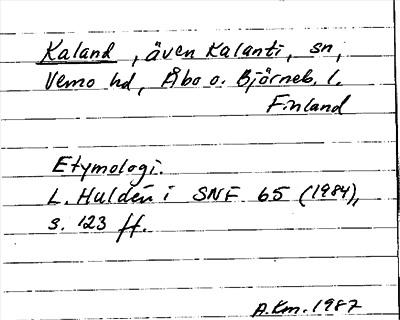 Kaland, även Kalanti, sn,
Vemo hd, Åbo o. Björneb. l.
Finland
Etymologi.
L. Huldén i SNF 65 (1984),
s. 123 ff.
A.Km. 1987